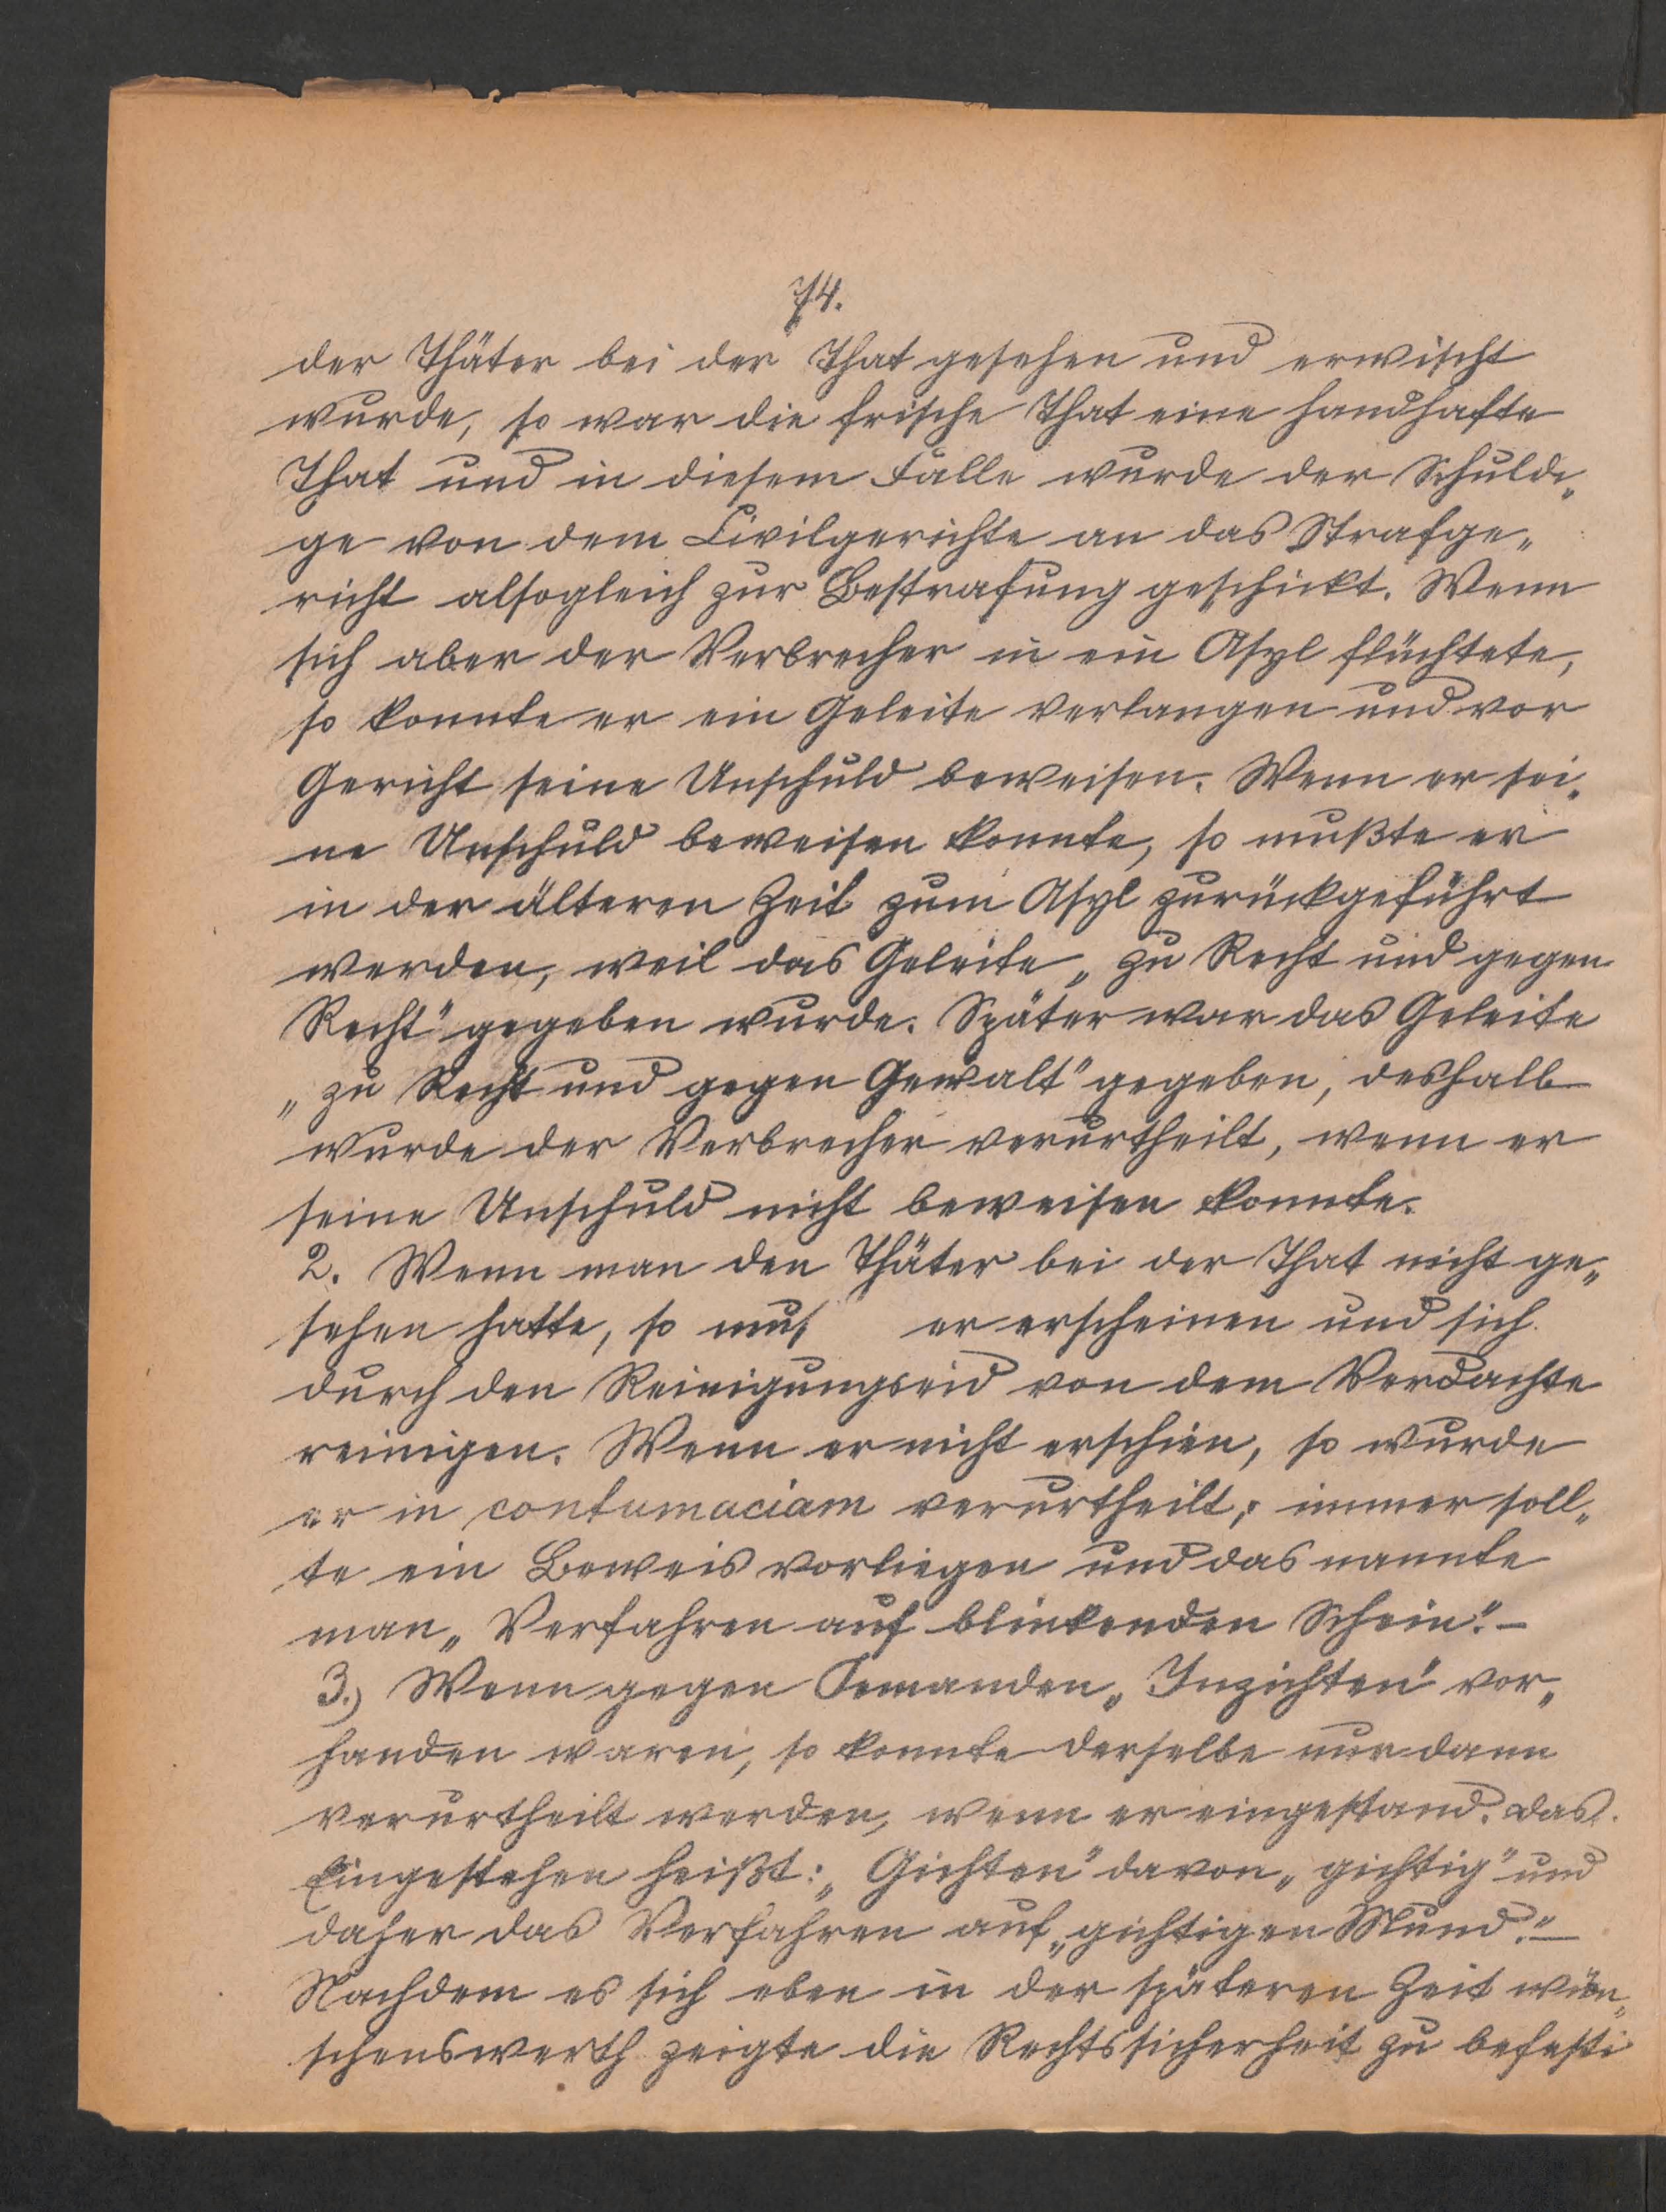 74.
der Thäter bei der That gesehen und erwischt
wurde, so war die frische That eine handhafte
That und in diesem Falle wurde der Schuldi„
ge von dem Civilgerichte an das Strafge„
richt alsogleich zur Bestrafung geschickt. Wenn
sich aber der Verbrecher in ein Asyl flüchtete,
so konnte er ein Geleite verlangen und vor
Gericht seine Unschuld beweisen. Wenn er sei„
ne Unschuld beweisen konnte, so mußte er
in der älteren Zeit zum Asyl zurückgeführt
werden, weil das Geleite „zu Recht und gegen
Recht" gegeben wurde. Später war das Geleite
„zu Recht und gegen Gewalt" gegeben, deshalb
wurde der Verbrecher verurtheilt, wenn er
seine Unschuld nicht beweisen konnte.
2. Wenn man den Thäter bei der That nicht ge„
sehen hatte, so mus er erscheinen und sich
durch den Reinigungseid von dem Verdachte
reinigen. Wenn er nicht erschien, so wurde
er in contumaciam verurtheilt; immer soll„
te ein Beweis vorliegen und das nannte
man „Verfahren auf blinkenden Schein." –
3.) Wenn gegen Jemanden „Inzichten" vor„
handen waren, so konnte derselbe nur dann
verurtheilt werden, wenn er eingestand. Das
Eingestehen heißt: „Gichten" davon „gichtig" und
daher das Verfahren auf „gichtigen Mund." –
Nachdem es sich eben in der späteren Zeit wün„
schenswerth zeigte die Rechtssicherheit zu befesti